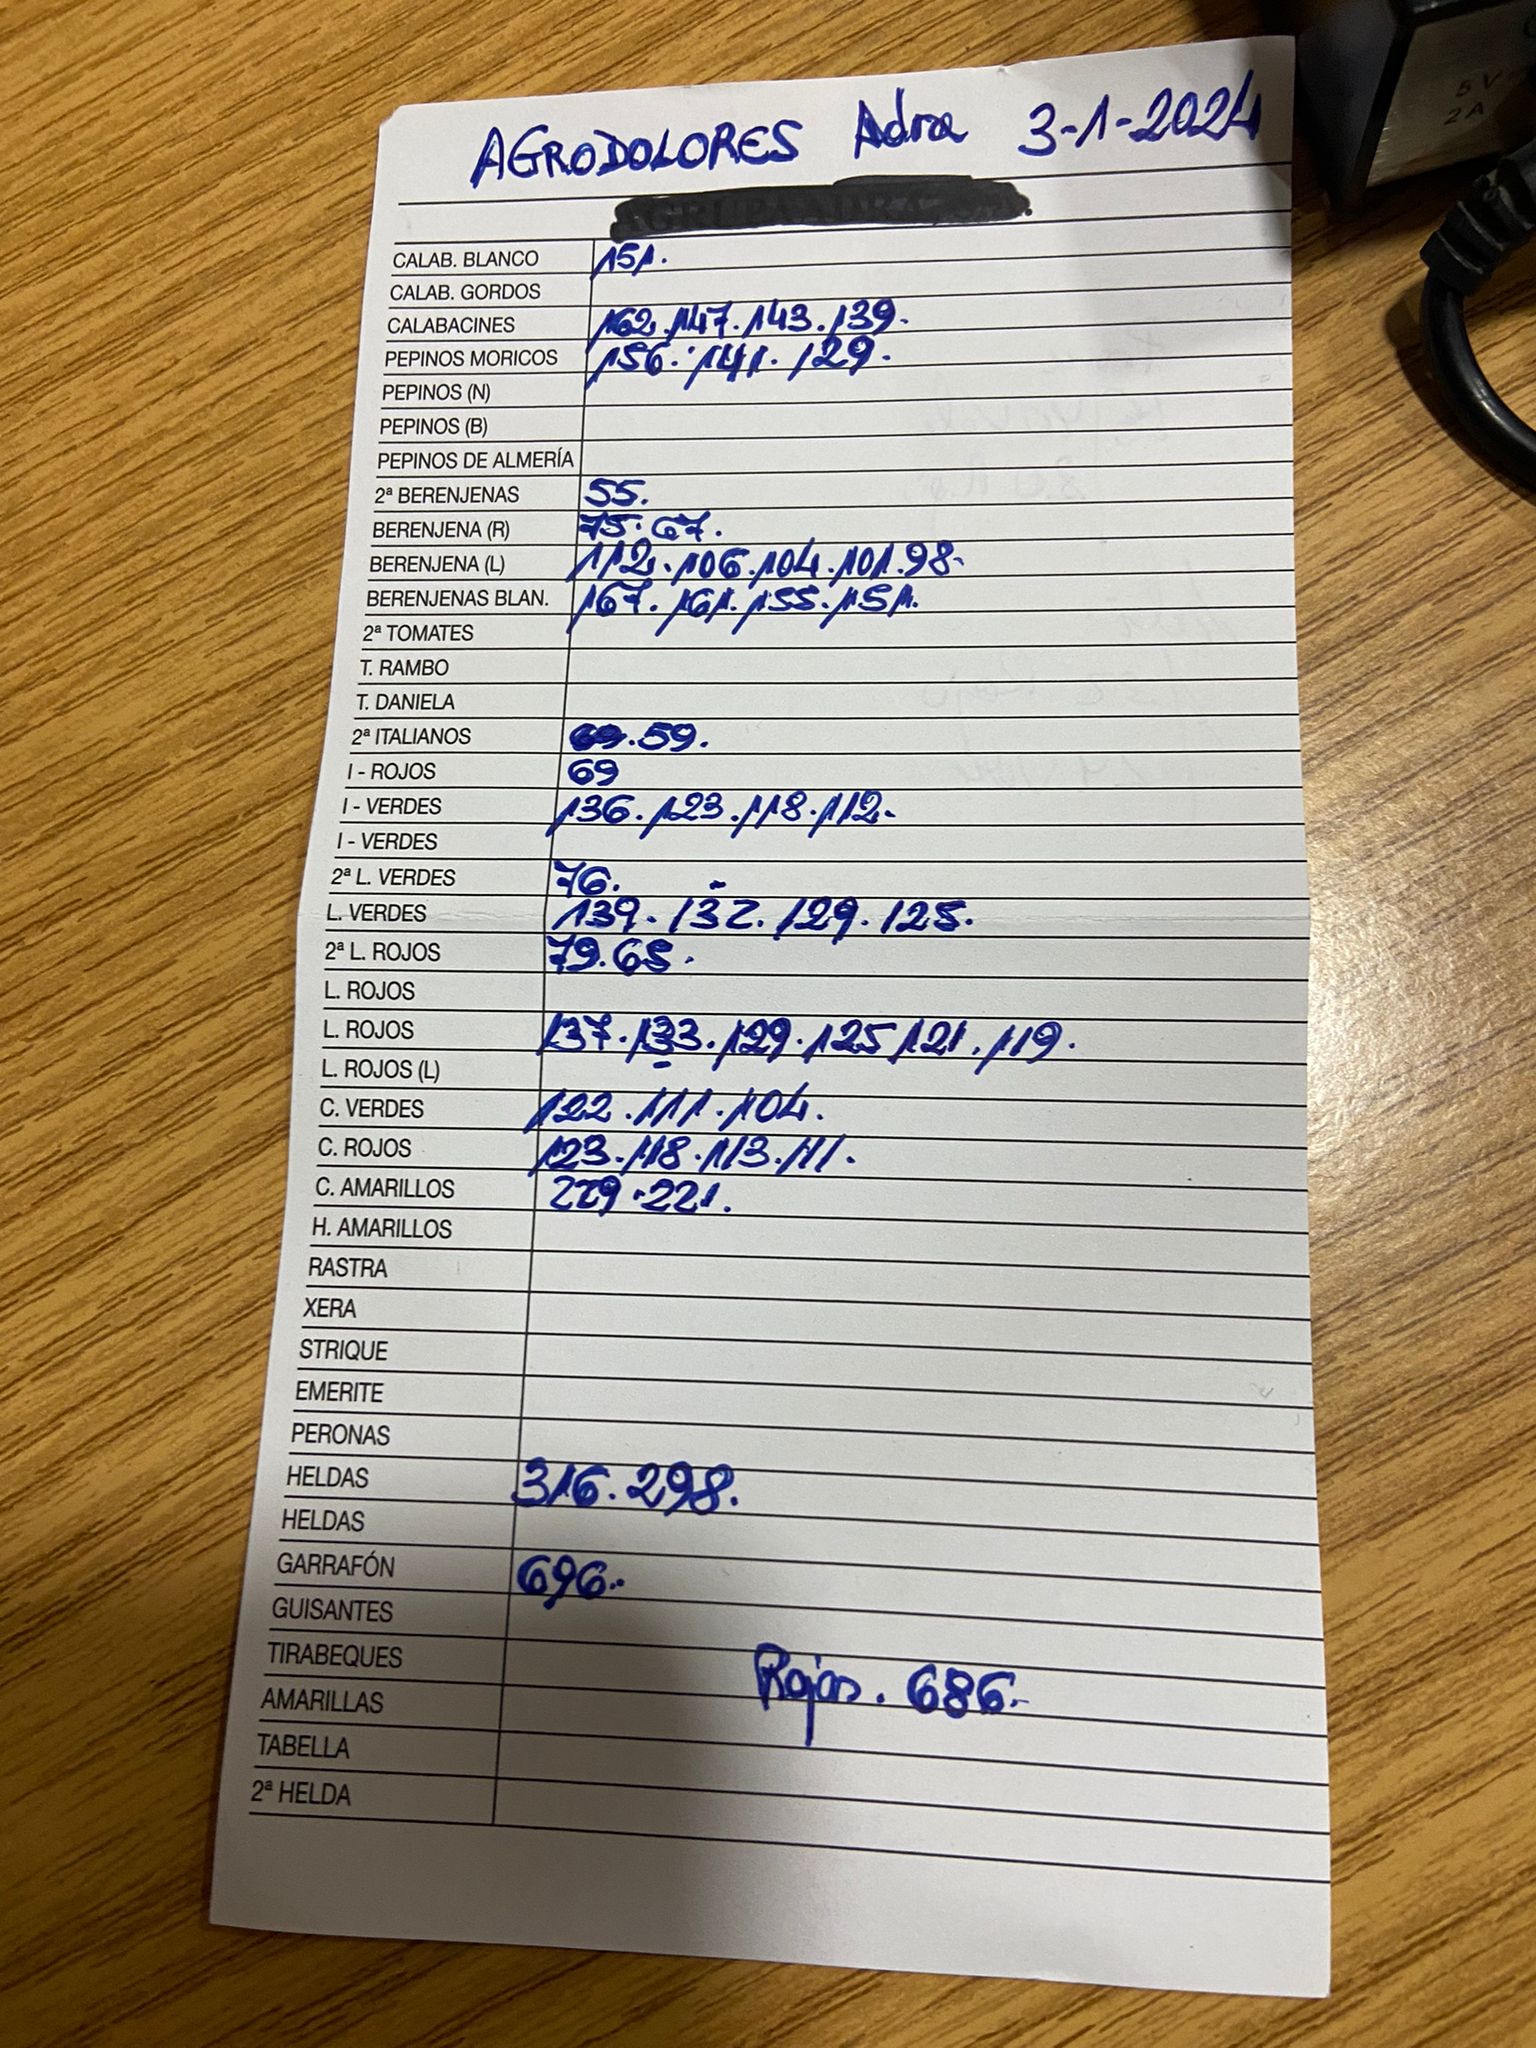 AGRODOLORES Adra 3-1-2024
CALAB. BLANCO 151.
CALAB. GORDOS
CALABACINES 162.147.143.139.
PEPINOS MORICOS 156.141.129.
PEPINOS (N)
PEPINOS (B)
PEPINOS DE ALMERÍA
2ª BERENJENAS 55.
BERENJENA (R) 75.67.
BERENJENA (L) 112.106.104.101.98.
BERENJENAS BLAN. 167.161.155.151.
2ª TOMATES
T. RAMBO
T. DANIELA
2ª ITALIANOS .59.
I - ROJOS 69
I - VERDES 136.123.118.112.
I - VERDES
2ª L. VERDES 76.
L. VERDES 139.132.129.125.
2ª L. ROJOS 79.65.
L. ROJOS
L. ROJOS 137.133.129.125 121.119.
L. ROJOS (L)
C. VERDES 122.111.104.
C. ROJOS 123.118.113.111.
C. AMARILLOS 229.221.
H. AMARILLOS
RASTRA
XERA
STRIQUE
EMERITE
PERONAS
HELDAS 316.298.
HELDAS
GARRAFÓN 696.
GUISANTES
TIRABEQUES
Rojas. 686.
AMARILLAS
TABELLA
2ª HELDA
5V
2A